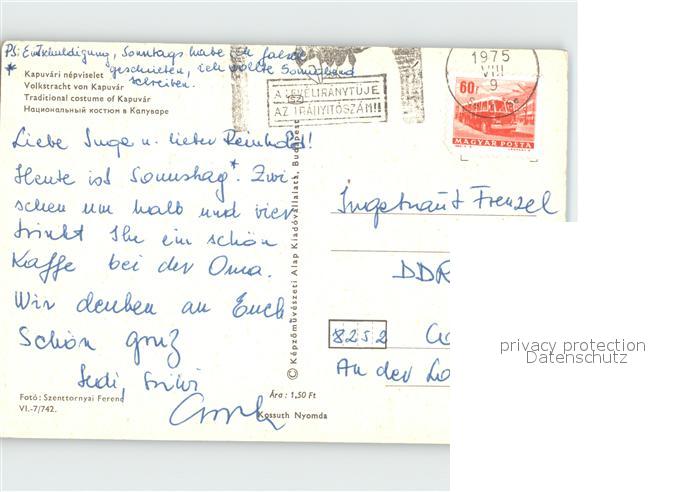 PS: Entschuldigung, Sonntags habe ich falsch
* geschrieben, ich wollte Sonnabend
schreiben.
Kapuvári népviselet
Volkstracht von Kapuvár
Traditional costume of Kapuvár
Национальный костюм в Капуваре
A LEVÉLIRÁNYTŰJE
AZ IRÁNYÍTÓSZÁM!!
1975
VIII
9
60f
MAGYAR POSTA
Liebe Inge u. lieber Reinhold!
Heute ist Sonnstag*. Zwi
schen um halb und vier
trinkt Ihr ein schön
Kaffe bei der Oma.
Wir denken an Euch
Schön gruz
© Képzőművészeti Alap Kiadóvállalata, Budapest
Ingetraut Frenzel
DDR
8252
An der
privacy protection
Datenschutz
Fotó: Szenttornyai Ferenc
VI.-7/742.
Ára: 1,50 Ft
Kossuth Nyomda